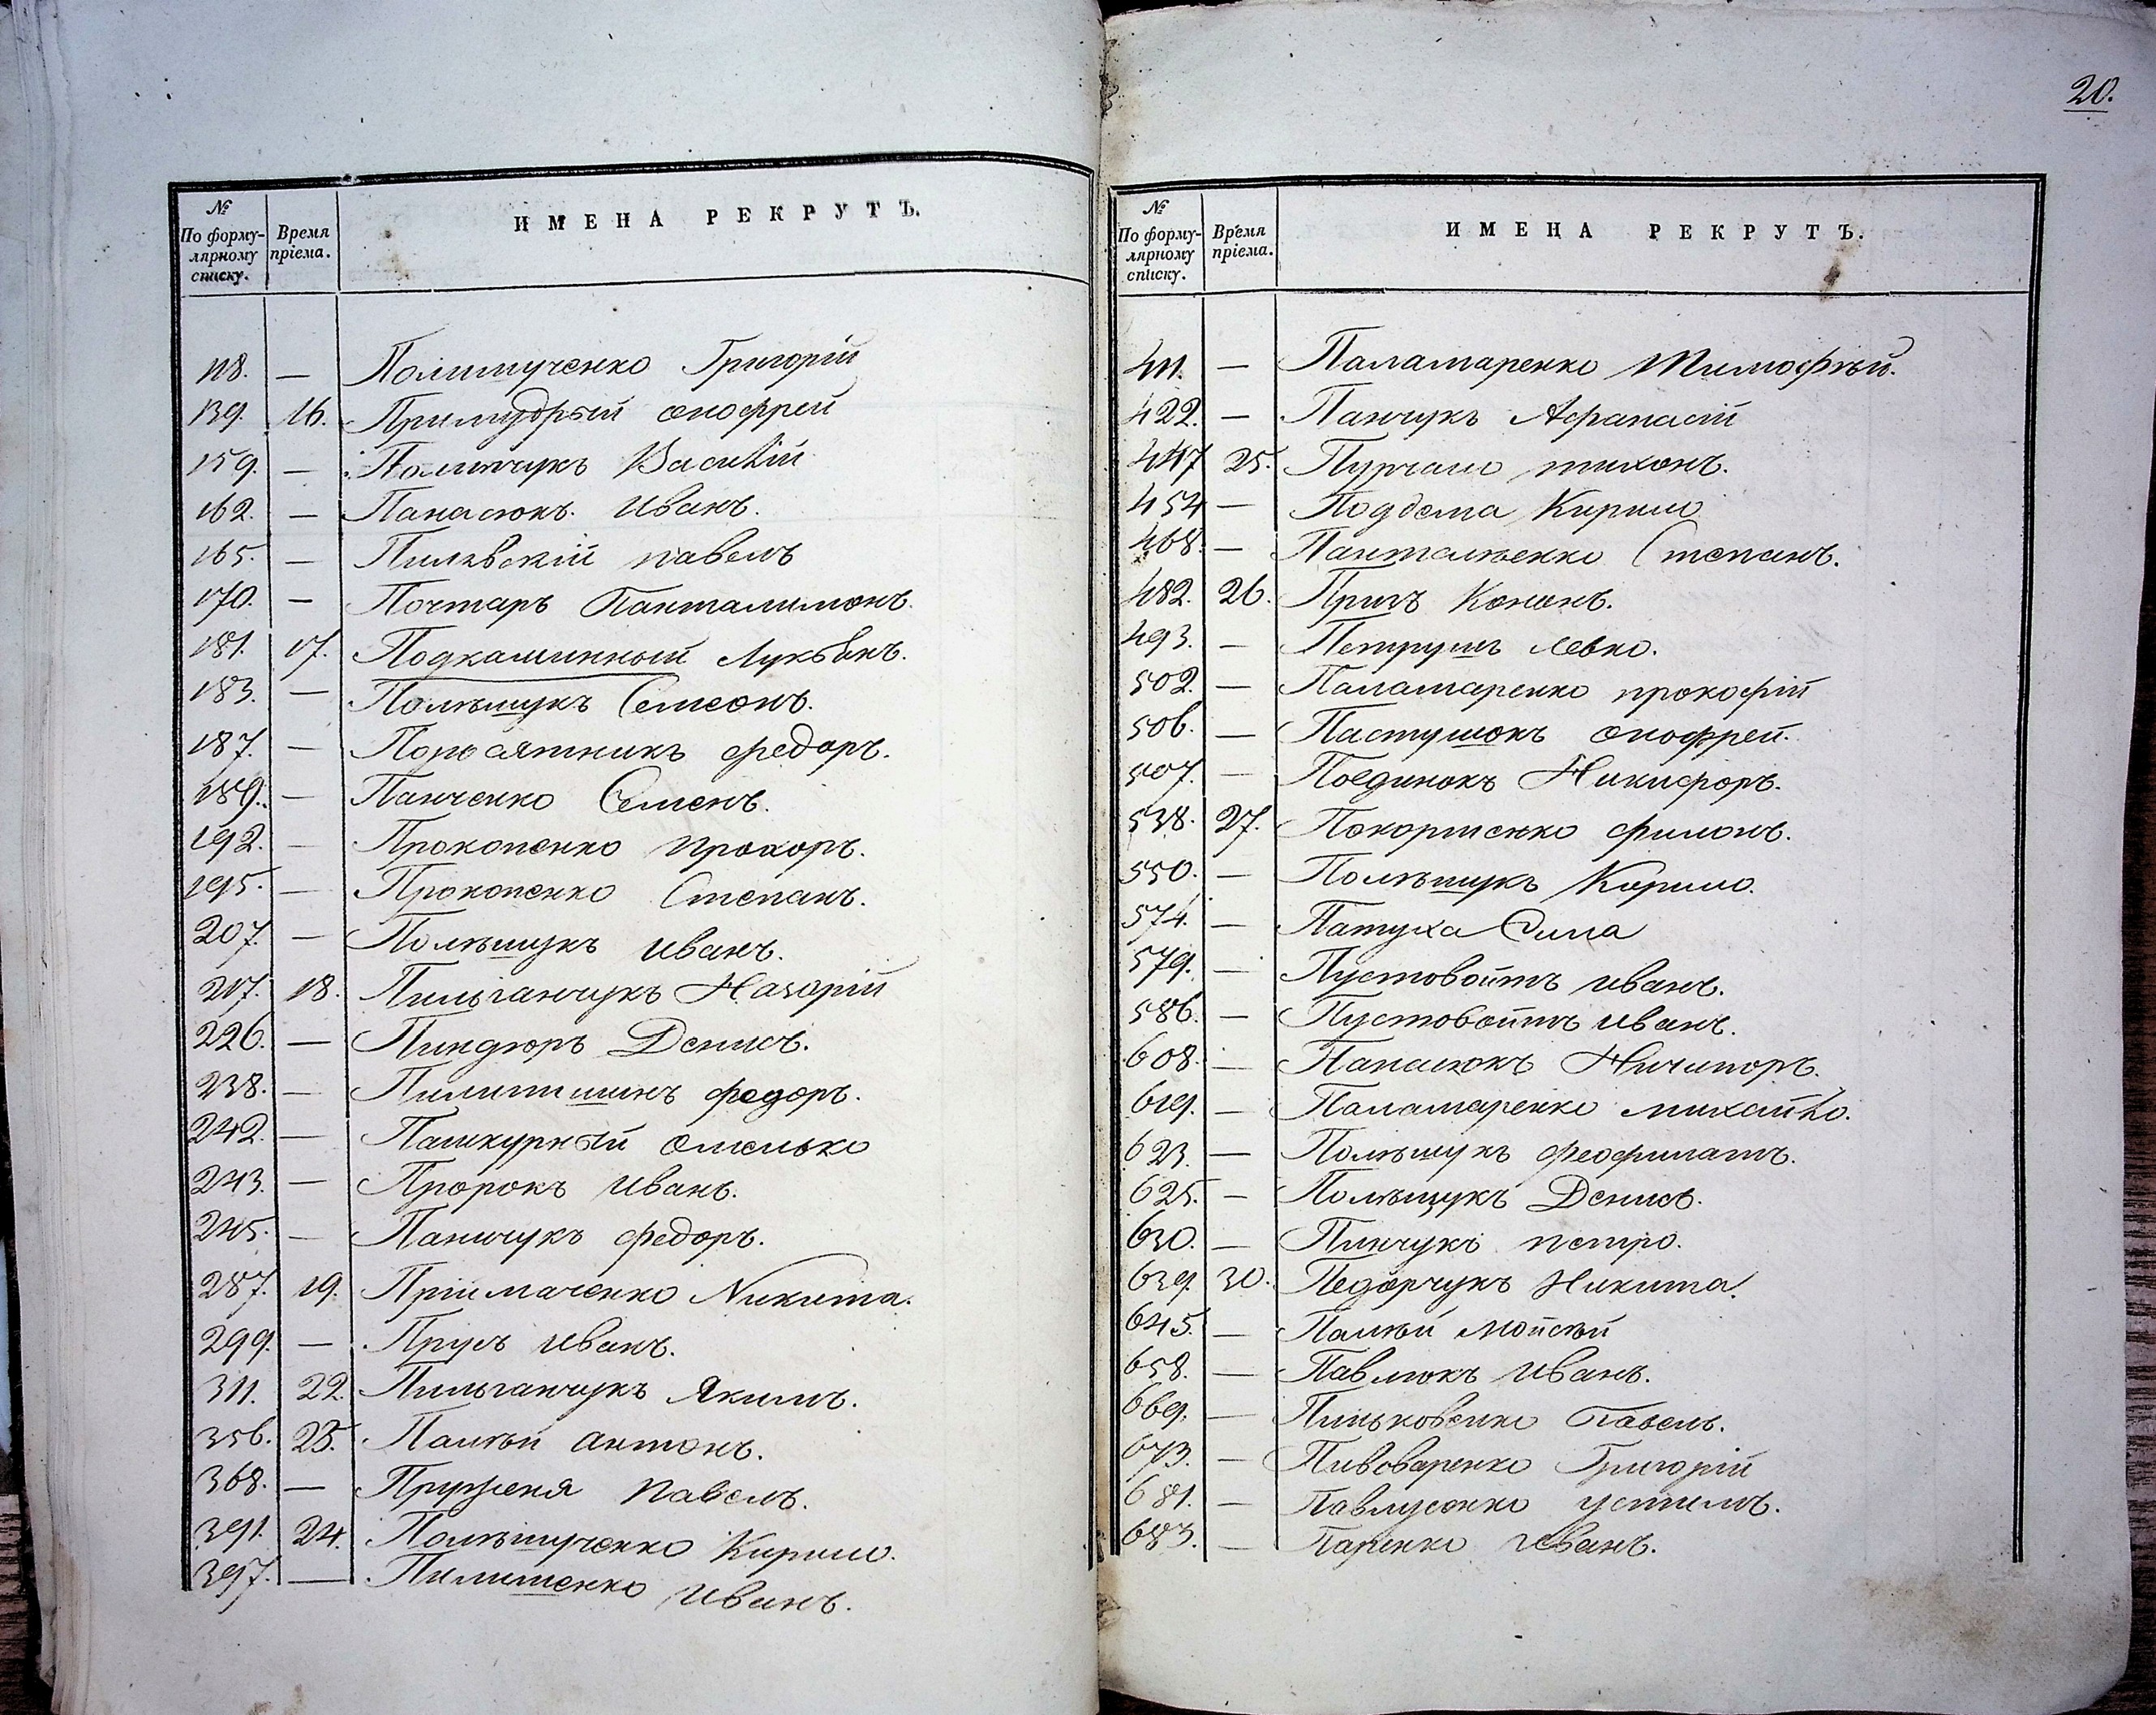 №
По форму-
лярному
списку.
Время
пріема.
ИМЕНА РЕКРУТЪ.
118. — Полищученко Григорій
139. 16. Примудрый онофрей
159. — Полищукъ Василій
162. — Панасюкъ. Иванъ.
165. — Пилявскій павелъ
170. — Почтаръ Панталимонъ.
181. 17. Подкаминный Лукьянъ.
183. — Полѣщукъ Семеонъ.
187. — Поросятникъ федоръ.
189. — Панченко Семенъ.
192. — Прокопенко прохоръ.
195. — Прокопенко Степанъ.
207. — Полѣщукъ иванъ.
217. 18. Пильганчукъ Назарій
226. — Пиндюръ Денисъ.
238. — Пилипишинъ федоръ.
242. — Пашкурный омелько
243. — Пророкъ иванъ.
245. — Панчукъ федоръ.
287. 19. Пріймаченко Никита.
299. — Прусъ иванъ.
311. 22. Пильганчукъ Якимъ.
356. 23. Палѣй антонъ.
368. — Пруженя павелъ.
391. 24. Полѣщученко Кирило.
397. — Пилипенко иванъ.
20.
№
По форму-
лярному
списку.
Время
пріема.
ИМЕНА РЕКРУТЪ.
411. — Паламаренко Тимофѣй.
422. — Панчукъ Афанасій
447 25. тихонъ.
454 — Поддема Кирило
468. — Панталѣенко Степанъ.
482. 26. Прицъ Кононъ.
493. — Петрушъ левко.
502. — Паламаренко прокофій
506. — Пастушокъ онофрей.
507. — Поединокъ Никифоръ.
538. 27. филонъ.
550. — Полѣщукъ Кирило.
574. — Патуха Сила
579. — Пустовойтъ иванъ.
586. — Пустовойтъ иванъ.
608. — Панасюкъ Ничипоръ.
619. — Паламаренко михайло.
623. — Полѣщукъ феофилатъ.
625. — Полѣщукъ Денисъ.
630. — Пинчукъ петро.
639. 30. Педорчукъ Никита.
645. — Палѣй мойсѣй
658. — Павлюкъ иванъ.
669. — Пиньковенко Павелъ.
673. — Пивоваренко Григорій
681. — Павлусенко устимъ.
683. — Паренко иванъ.